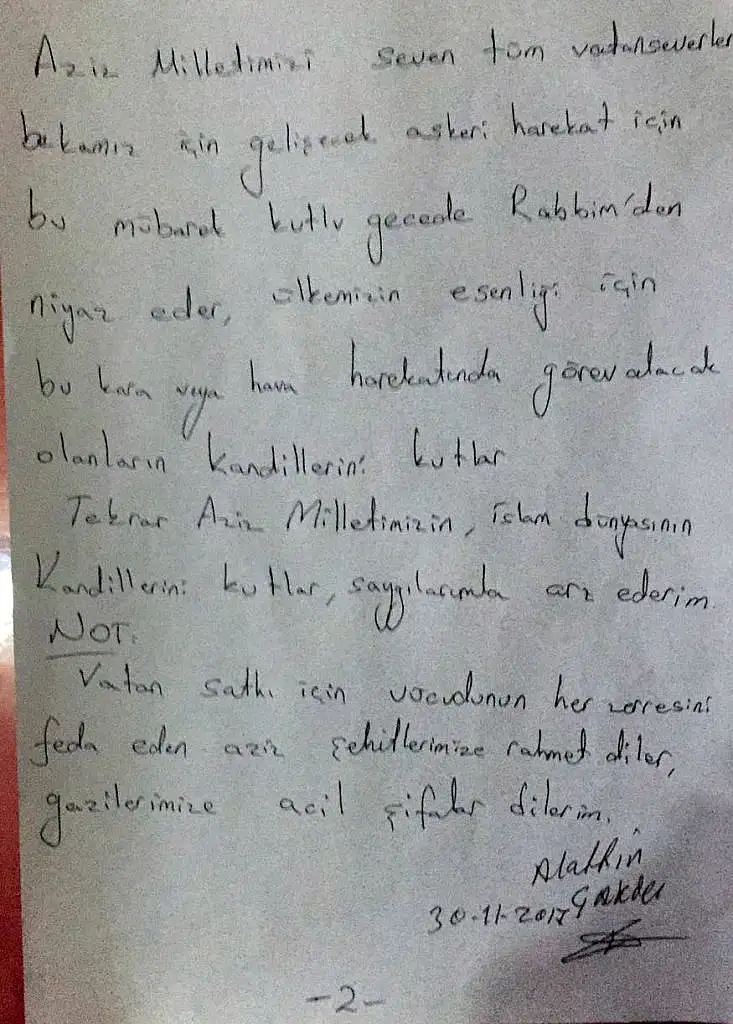 Aziz Milletimizi seven tüm vatanseverler
bekamız için gelişecek askeri harekat için
bu mübarek kutlu gecede Rabbim'den
niyaz eder, ülkemizin esenliği için
bu kara veya hava harekatında görev alacak
olanların kandillerini kutlar
Tekrar Aziz Milletimizin, İslam dünyasının
Kandillerini kutlar, saygılarımla arz ederim.
NOT:
Vatan sathı için vücudunun her zerresini
feda eden aziz şehitlerimize rahmet diler,
gazilerimize acil şifalar dilerim.
30-11-2017
-2-